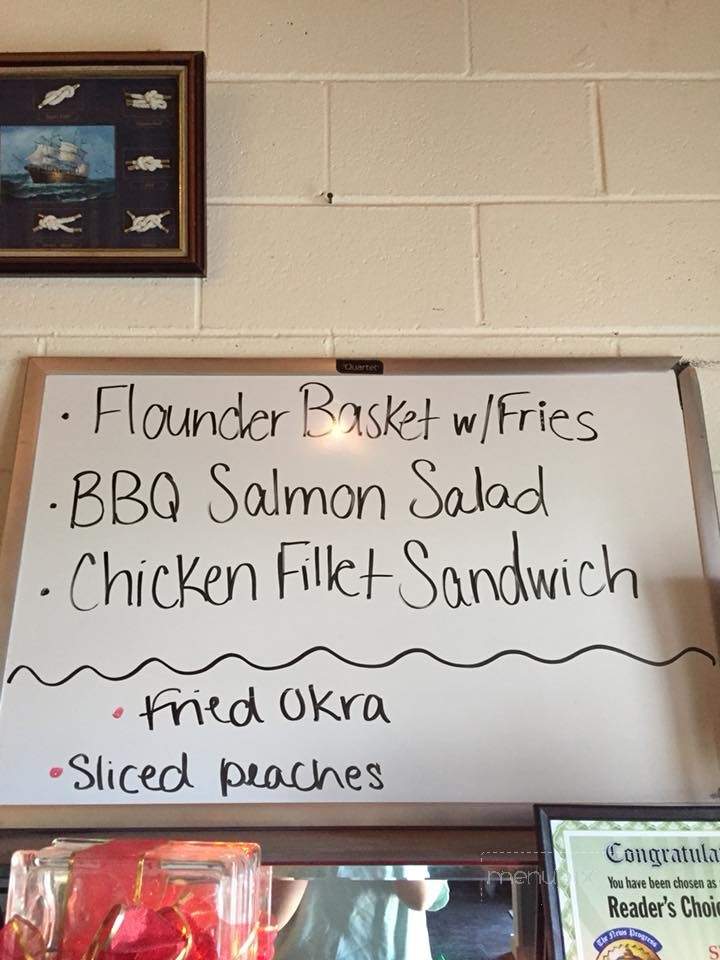 Quartet
• Flounder Basket w/Fries
• BBQ Salmon Salad
• Chicken Fillet Sandwich
• Fried Okra
• Sliced peaches
Congratula
You have been chosen as
Reader's Choi
The News Progress
S
menu